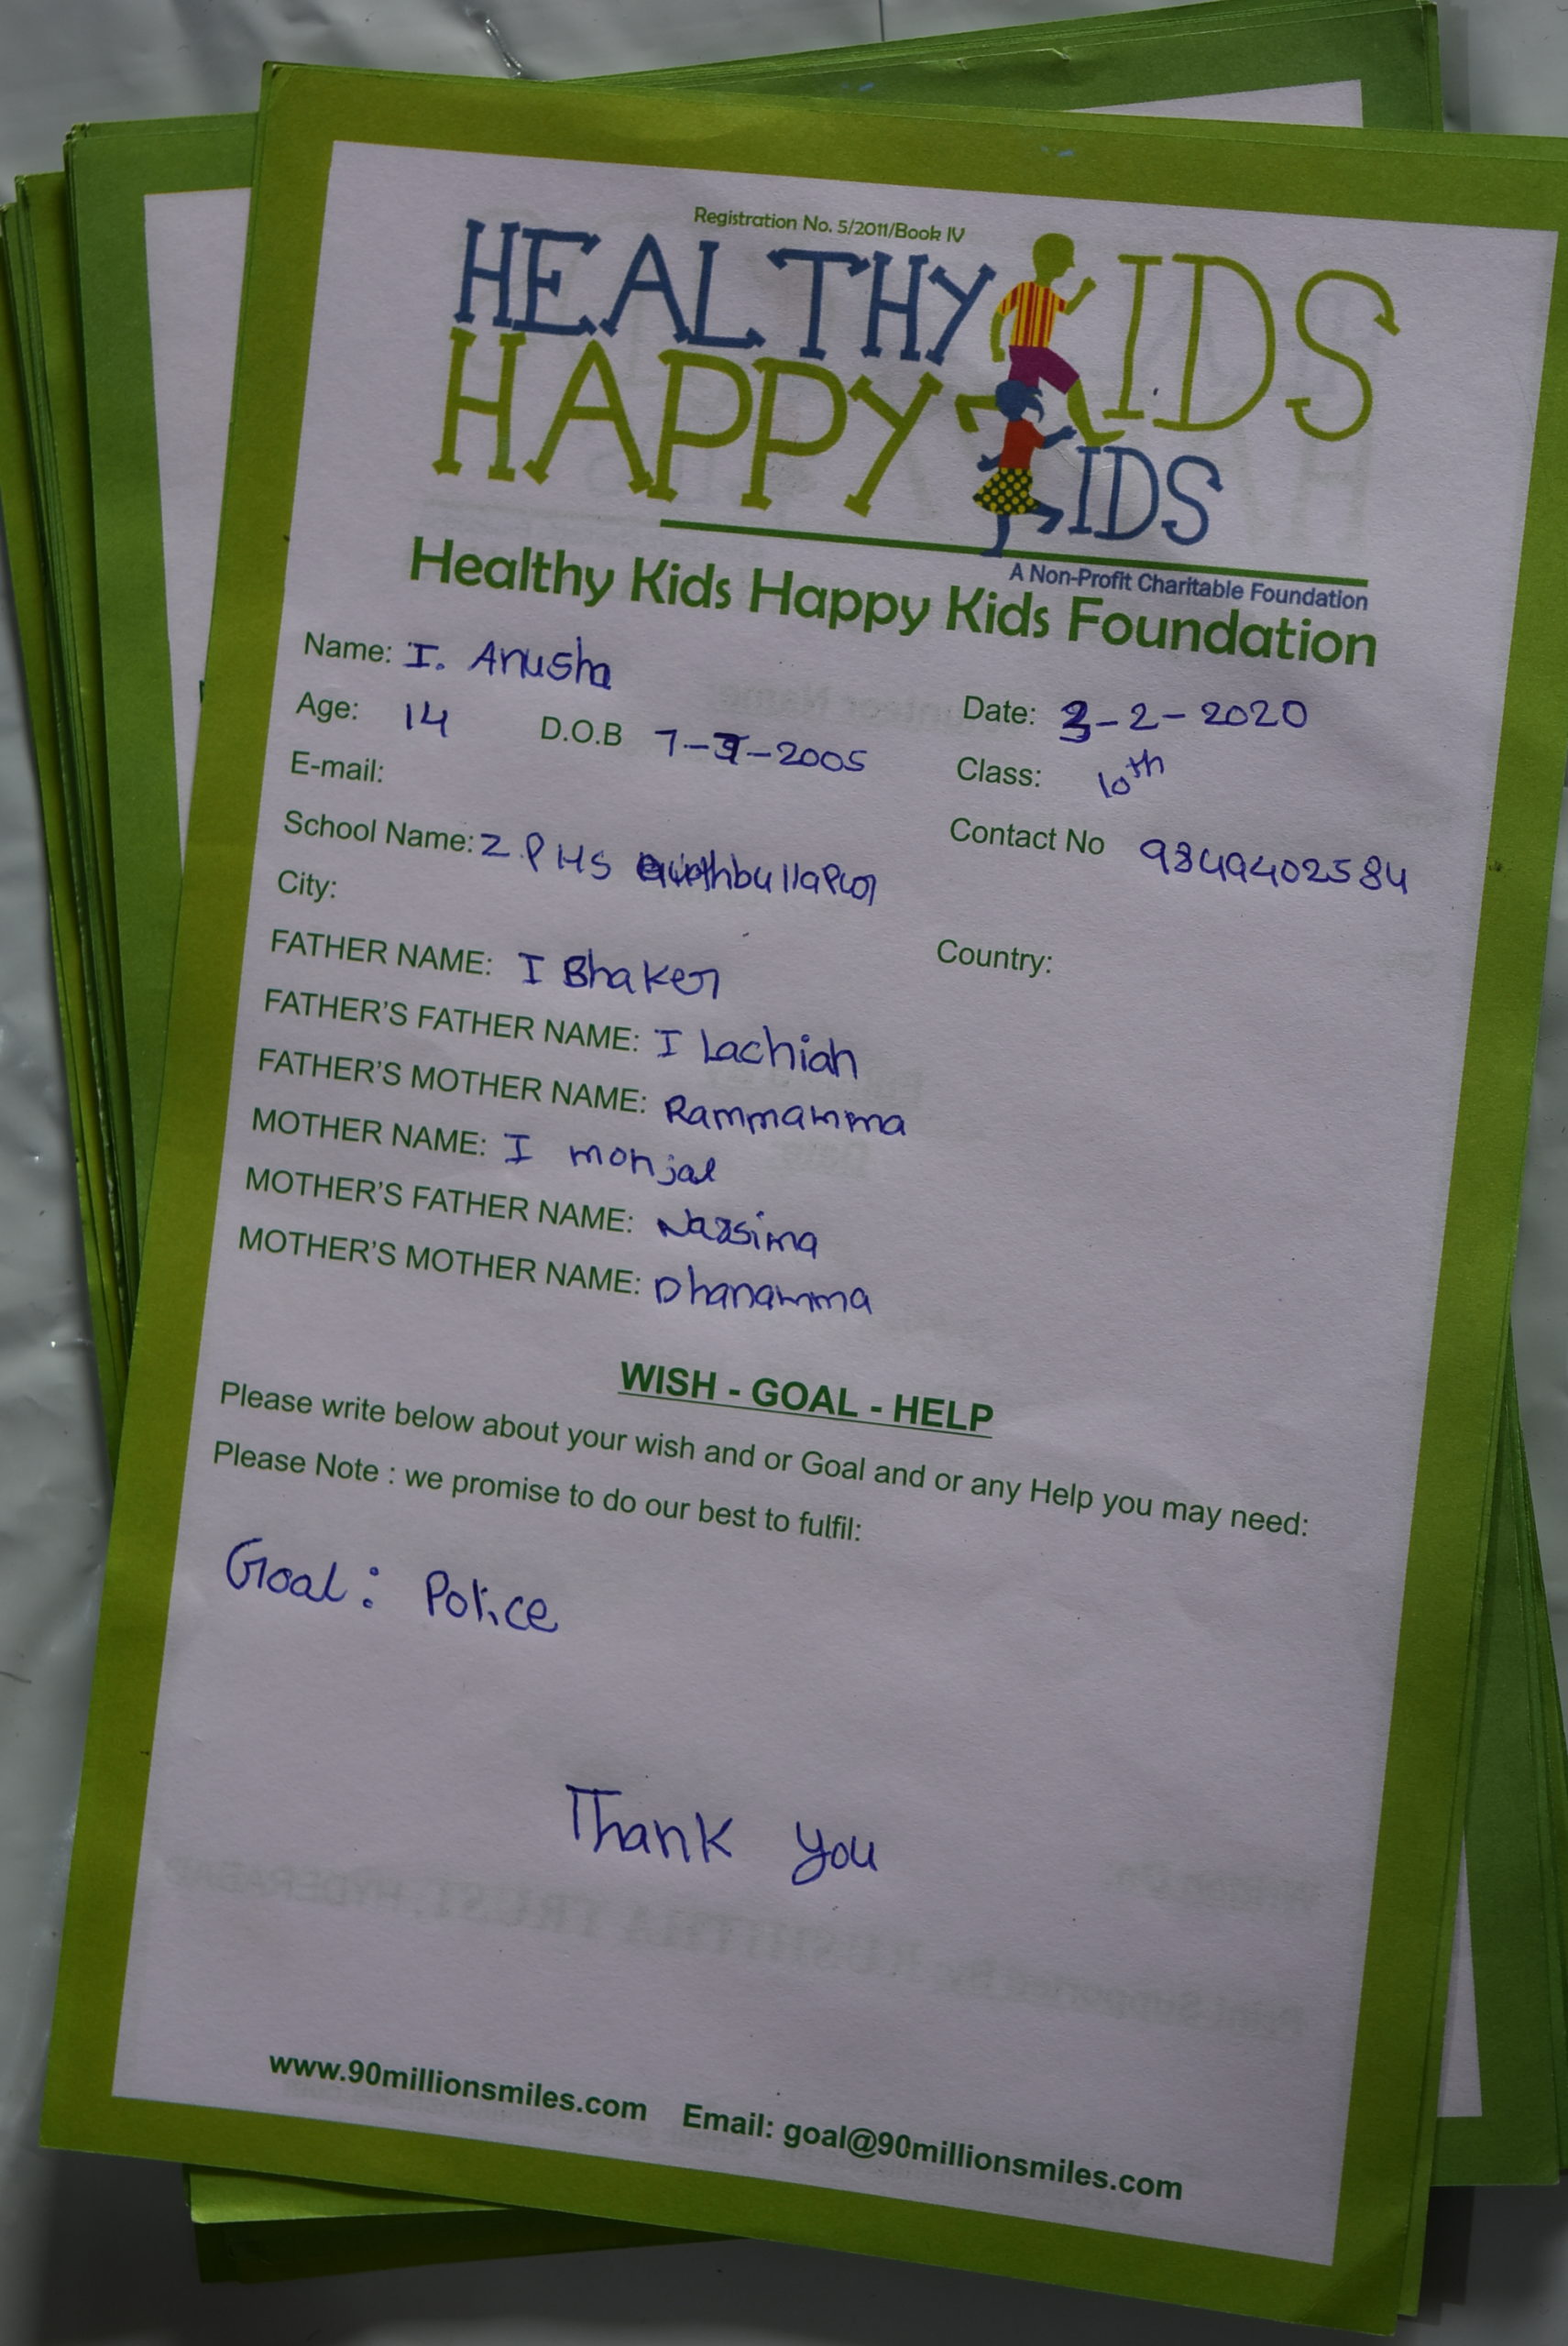 Registration No. 5/2011/Book IV
HEALTHY KIDS
HAPPY KIDS
A Non-Profit Charitable Foundation
Healthy Kids Happy Kids Foundation
Name: I. Anusha
Date: 3-2-2020
Age: 14 D.O.B 7-3-2005
Class: 10th
E-mail:
Contact No 9849402584
School Name: Z.PHS
City:
Country:
FATHER NAME: I Bhaker
FATHER'S FATHER NAME: I Lachiah
FATHER'S MOTHER NAME: Rammamma
MOTHER NAME: I
MOTHER'S FATHER NAME: Narsima
MOTHER'S MOTHER NAME: Dhanamma
WISH - GOAL - HELP
Please write below about your wish and or Goal and or any Help you may need:
Please Note : we promise to do our best to fulfil:
Goal: Police
Thank you
www.90millionsmiles.com Email: goal@90millionsmiles.com